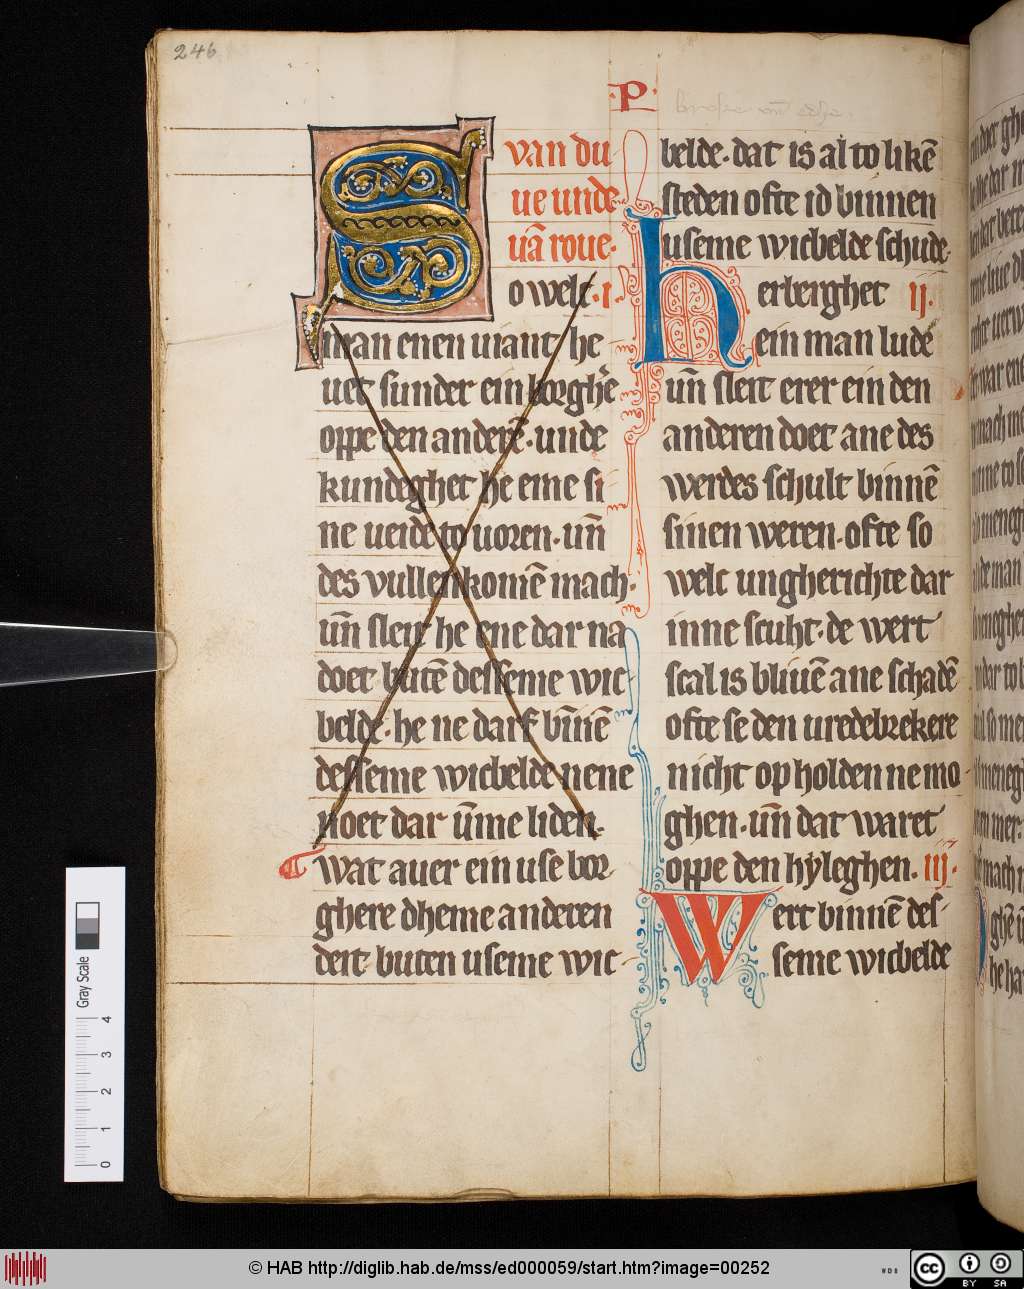 246
·P·
van du
ue unde
uā roue·
S
o welc·i·
man enen uiant he
uet sunder ein borghe
oppe den anderē·unde
kundeghet he eme si
ne ueide to uoren·un̄
des vullenkomē mach·
un̄ sleit he ene dar na
doet butē desseme wic
belde·he ne darf bīnē
desseme wicbelde nene
noet dar ūme liden·
wat auer ein use bor
ghere dheme anderen
deit buten useme wic
belde·dat is al to likē
steden ofte id binnen
useme wicbelde schude
h
erberghet ij·
ein man lude
un̄ sleit erer ein den
anderen doet ane des
werdes schult binnē
sinen weren·ofte so
welc ungherichte dar
inne scuht·de wert
scal is bliuē ane schadē
ofte se den uredebrekere
nicht op holden ne mo
ghen·un̄ dat waret
oppe den hyleghen·iij·
W
ert binnē des
seme wicbelde
Gray Scale
4
3
2
1
0
© HAB http://diglib.hab.de/mss/ed000059/start.htm?image=00252
WDB
cc
BY SA